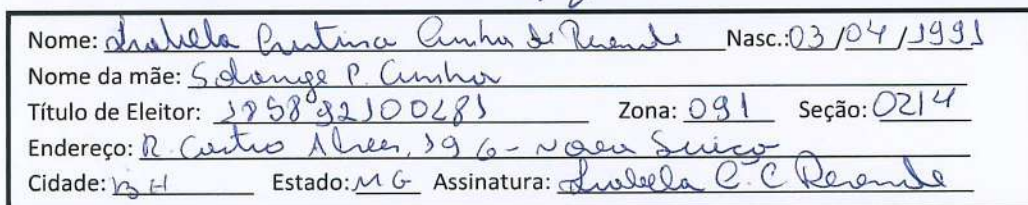 Nome: Isabela Cristina Cunha de Resende Nasc.: 03/04/1991
Nome da mãe: Solange P. Cunha
Título de Eleitor: 185892100281 Zona: 091 Seção: 0214
Endereço: R. Castro Alves, 196 - Nova Suiça
Cidade: BH Estado: MG Assinatura: Isabela C. C Resende